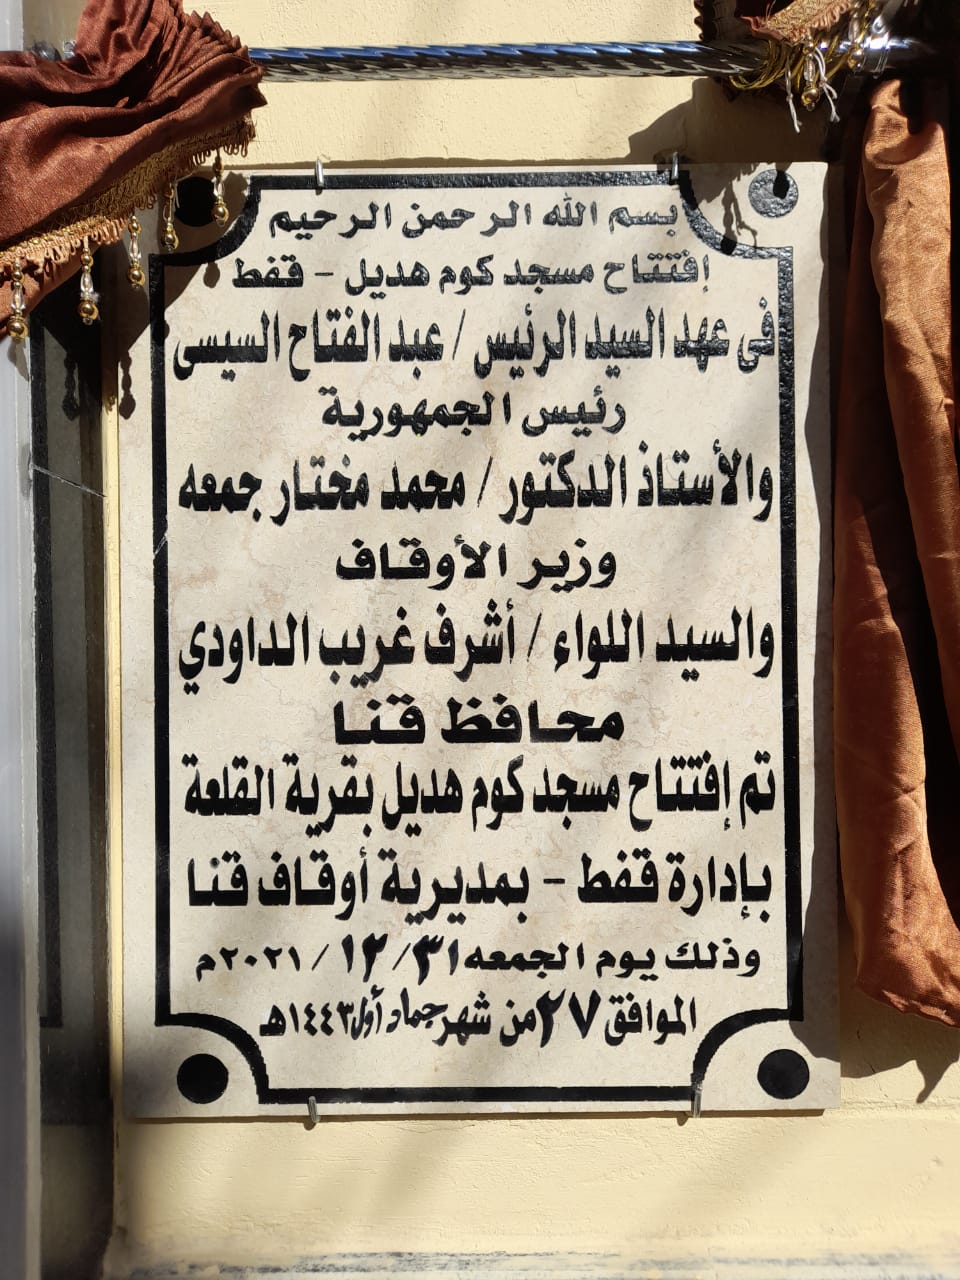 بسم الله الرحمن الرحيم
إفتتاح مسجد كوم هديل - قفط
فى عهد السيد الرئيس / عبد الفتاح السيسى
رئيس الجمهورية
والأستاذ الدكتور / محمد مختار جمعه
وزير الأوقاف
والسيد اللواء / أشرف غريب الداودي
محافظ قنا
تم إفتتاح مسجد كوم هديل بقرية القلعة
بإدارة قفط - بمديرية أوقاف قنا
وذلك يوم الجمعه ٣١ / ١٢ / ٢٠٢١م
الموافق ٢٧ من شهر جماد أول ١٤٤٣هـ